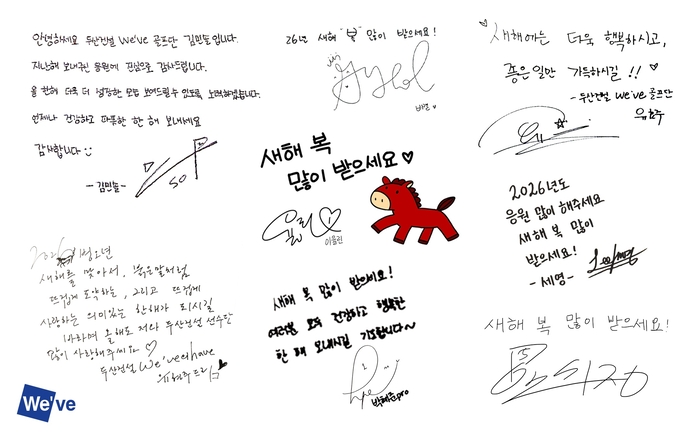 안녕하세요 두산건설 We've 골프단 김민솔입니다.
지난해 보내주신 응원에 진심으로 감사드립니다.
올 한해 더욱 더 성장한 모습 보여드릴 수 있도록 노력하겠습니다.
언제나 건강하고 따뜻한 한 해 보내세요
감사합니다
- 김민솔 -
26년 새해 "복" 많이 받으세요!
새해에는 더욱 행복하시고,
좋은 일만 가득하시길 !!
- 두산건설 we've 골프단
유효주
새해 복
많이 받으세요
이율린
2026년도
응원 많이 해주세요
새해 복 많이
받으세요!
- 세영 -
새해를 맞아서, 붉은 말처럼
뜨겁게 도약하는, 그리고 뜨겁게
사랑하는 의미있는 한해가 되시길
바라며 올해도 저와 두산건설 선수단
많이 사랑해주세요
두산건설 We've
유현주 드림
새해 복 많이 받으세요!
여러분 모두 건강하고 행복한
한 해 보내시길 기도합니다~
박혜준pro
새해 복 많이 받으세요!
We've